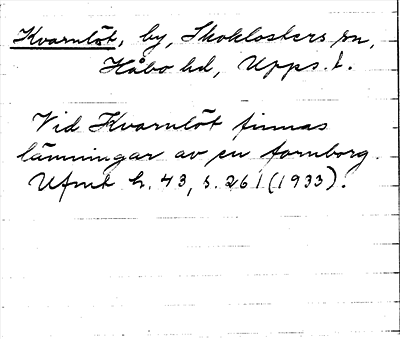 Kvarnlöt, by, Skoklosters sn,
Håbo hd, Upps. l.
Vid Kvarnlöt finnas
lämningar av en fornborg.
Ufmt h. 43, s. 261 (1933).